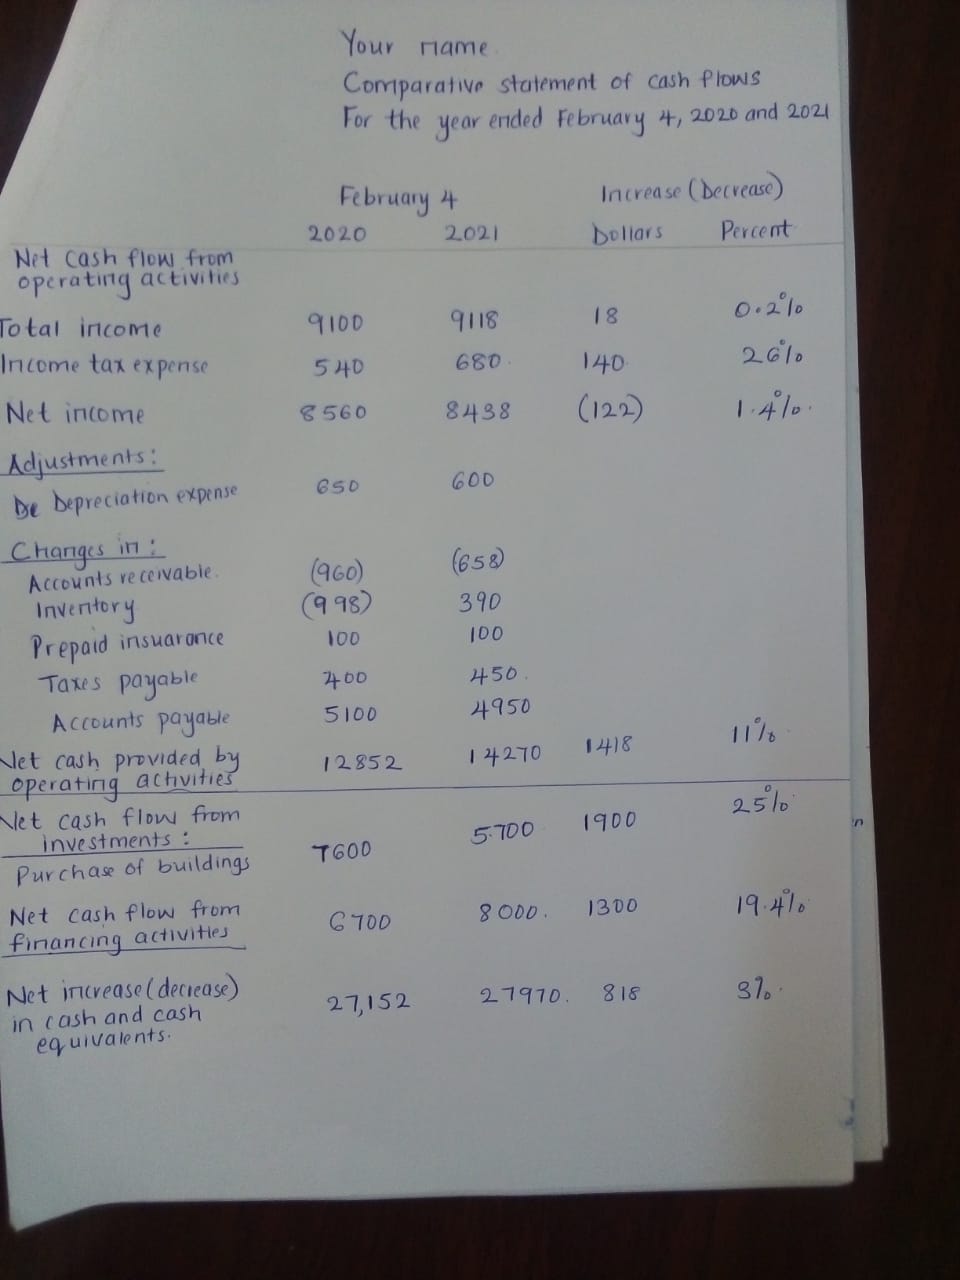 Your name
Comparative statement of cash flows
For the year ended February 4, 2020 and 2021
February 4 Increase (Decrease)
2020 2021 Dollars Percent
Net cash flow from
operating activities
Total income 9100 9118 18 0.2%
Income tax expense 540 680. 140 26%
Net income 8560 8438 (122) 1.4%.
Adjustments:
De Depreciation expense 650 600
Changes in:
Accounts receivable. (960) (658)
Inventory (998) 390
Prepaid insuarance 100 100
Taxes payable 400 450.
Accounts payable 5100 4950
Net cash provided by
operating activities 12852 14270 1418 11%
Net cash flow from
investments:
Purchase of buildings 7600 5700 1900 25%
Net cash flow from
financing activities 6700 8000. 1300 19.4%
Net increase (decrease)
in cash and cash
equivalents. 27,152 27970. 818 3%.